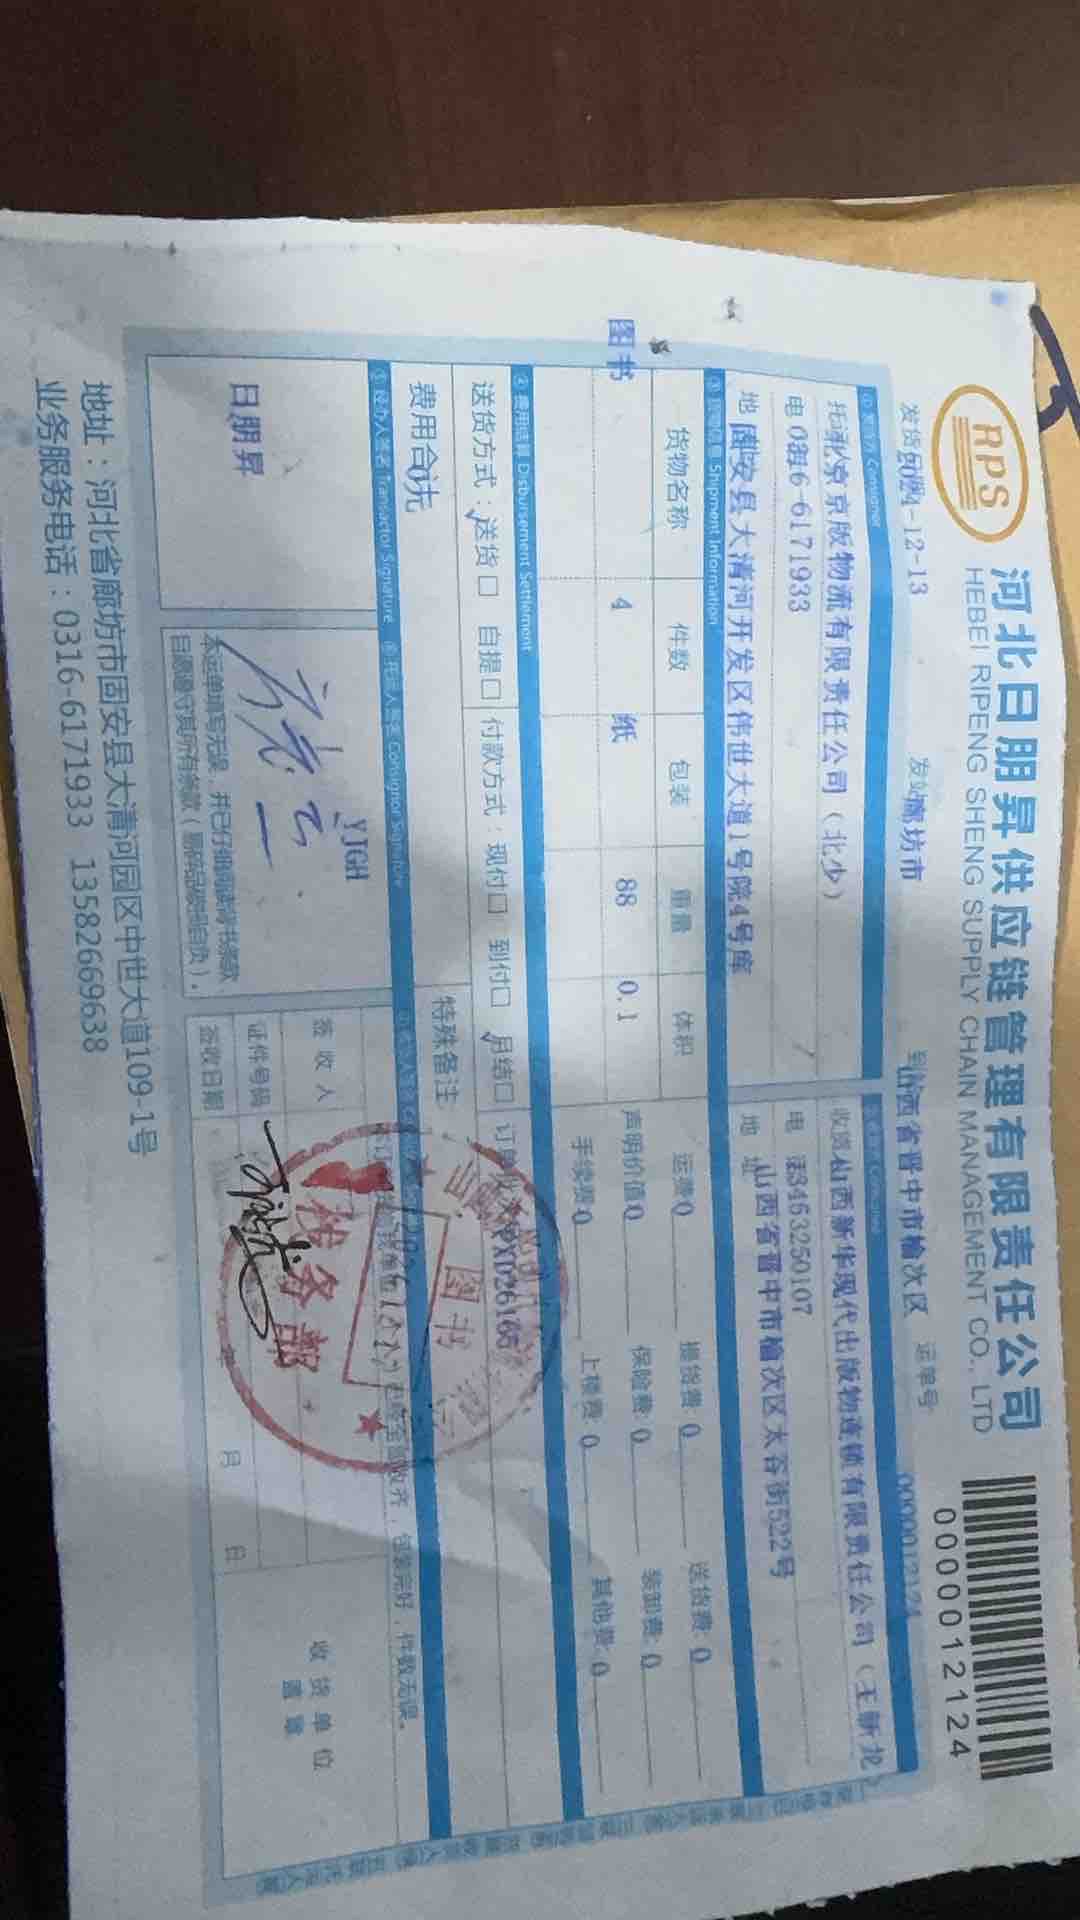 RPS
河北日朋昇供应链管理有限责任公司
HEBEI RIPENG SHENG SUPPLY CHAIN MANAGEMENT CO., LTD
0000012124
发货 -12-13 发站 廊坊市 到站 山西省晋中市榆次区 运单号 0000012124
① 发货方 Consignor
托运 北京京版物流有限责任公司（北少） 收货人 山西新华现代出版物连锁有限责任公司（王新龙）
电 0316-6171933 电 话 3463250107
地 固安县大清河开发区伟世大道1号院4号库 地 址 山西省晋中市榆次区太谷街522号
③ 货物信息 Shipment Information
货物名称 件数 包装 重量 体积 运费 0 提货费: 0 送货费: 0
图书 4 纸 88 0.1 声明价值 0 保险费: 0 装卸费: 0
手续费 0 上楼费: 0 其他费: 0
④ 费用结算 Disbursement Settlement
送货方式：送货口 自提口 付款方式：现付口 到付口 月结口 订单
费用合计 特殊备注
⑤ 经办人签名 Transactor Signature ⑥ 托运人签名 Consignor Signature
日朋昇 YJGH 包装完好，件数无误。
签收人
证件号码
签收日期 年 月 日
收货单位
盖章
本运单填写无误，并已仔细阅读背书条款
自愿遵守其所有条款（易碎品破损自负）。
图书
业务部
地址：河北省廊坊市固安县大清河园区中世大道109-1号
业务服务电话：0316-6171933 13582669638